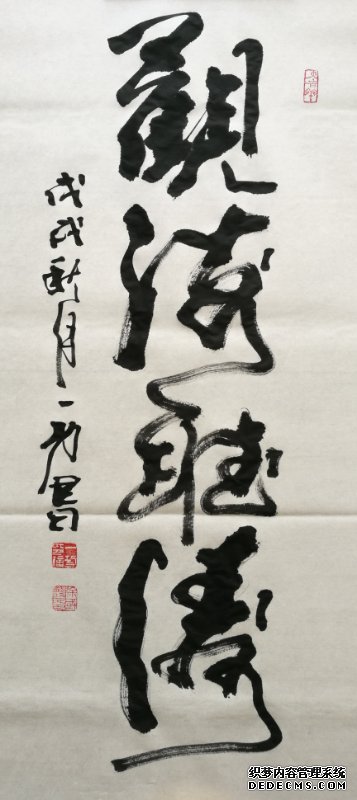 觀海聽濤
戊戌秋月一 書
织梦内容管理系统
DEDECMS.COM